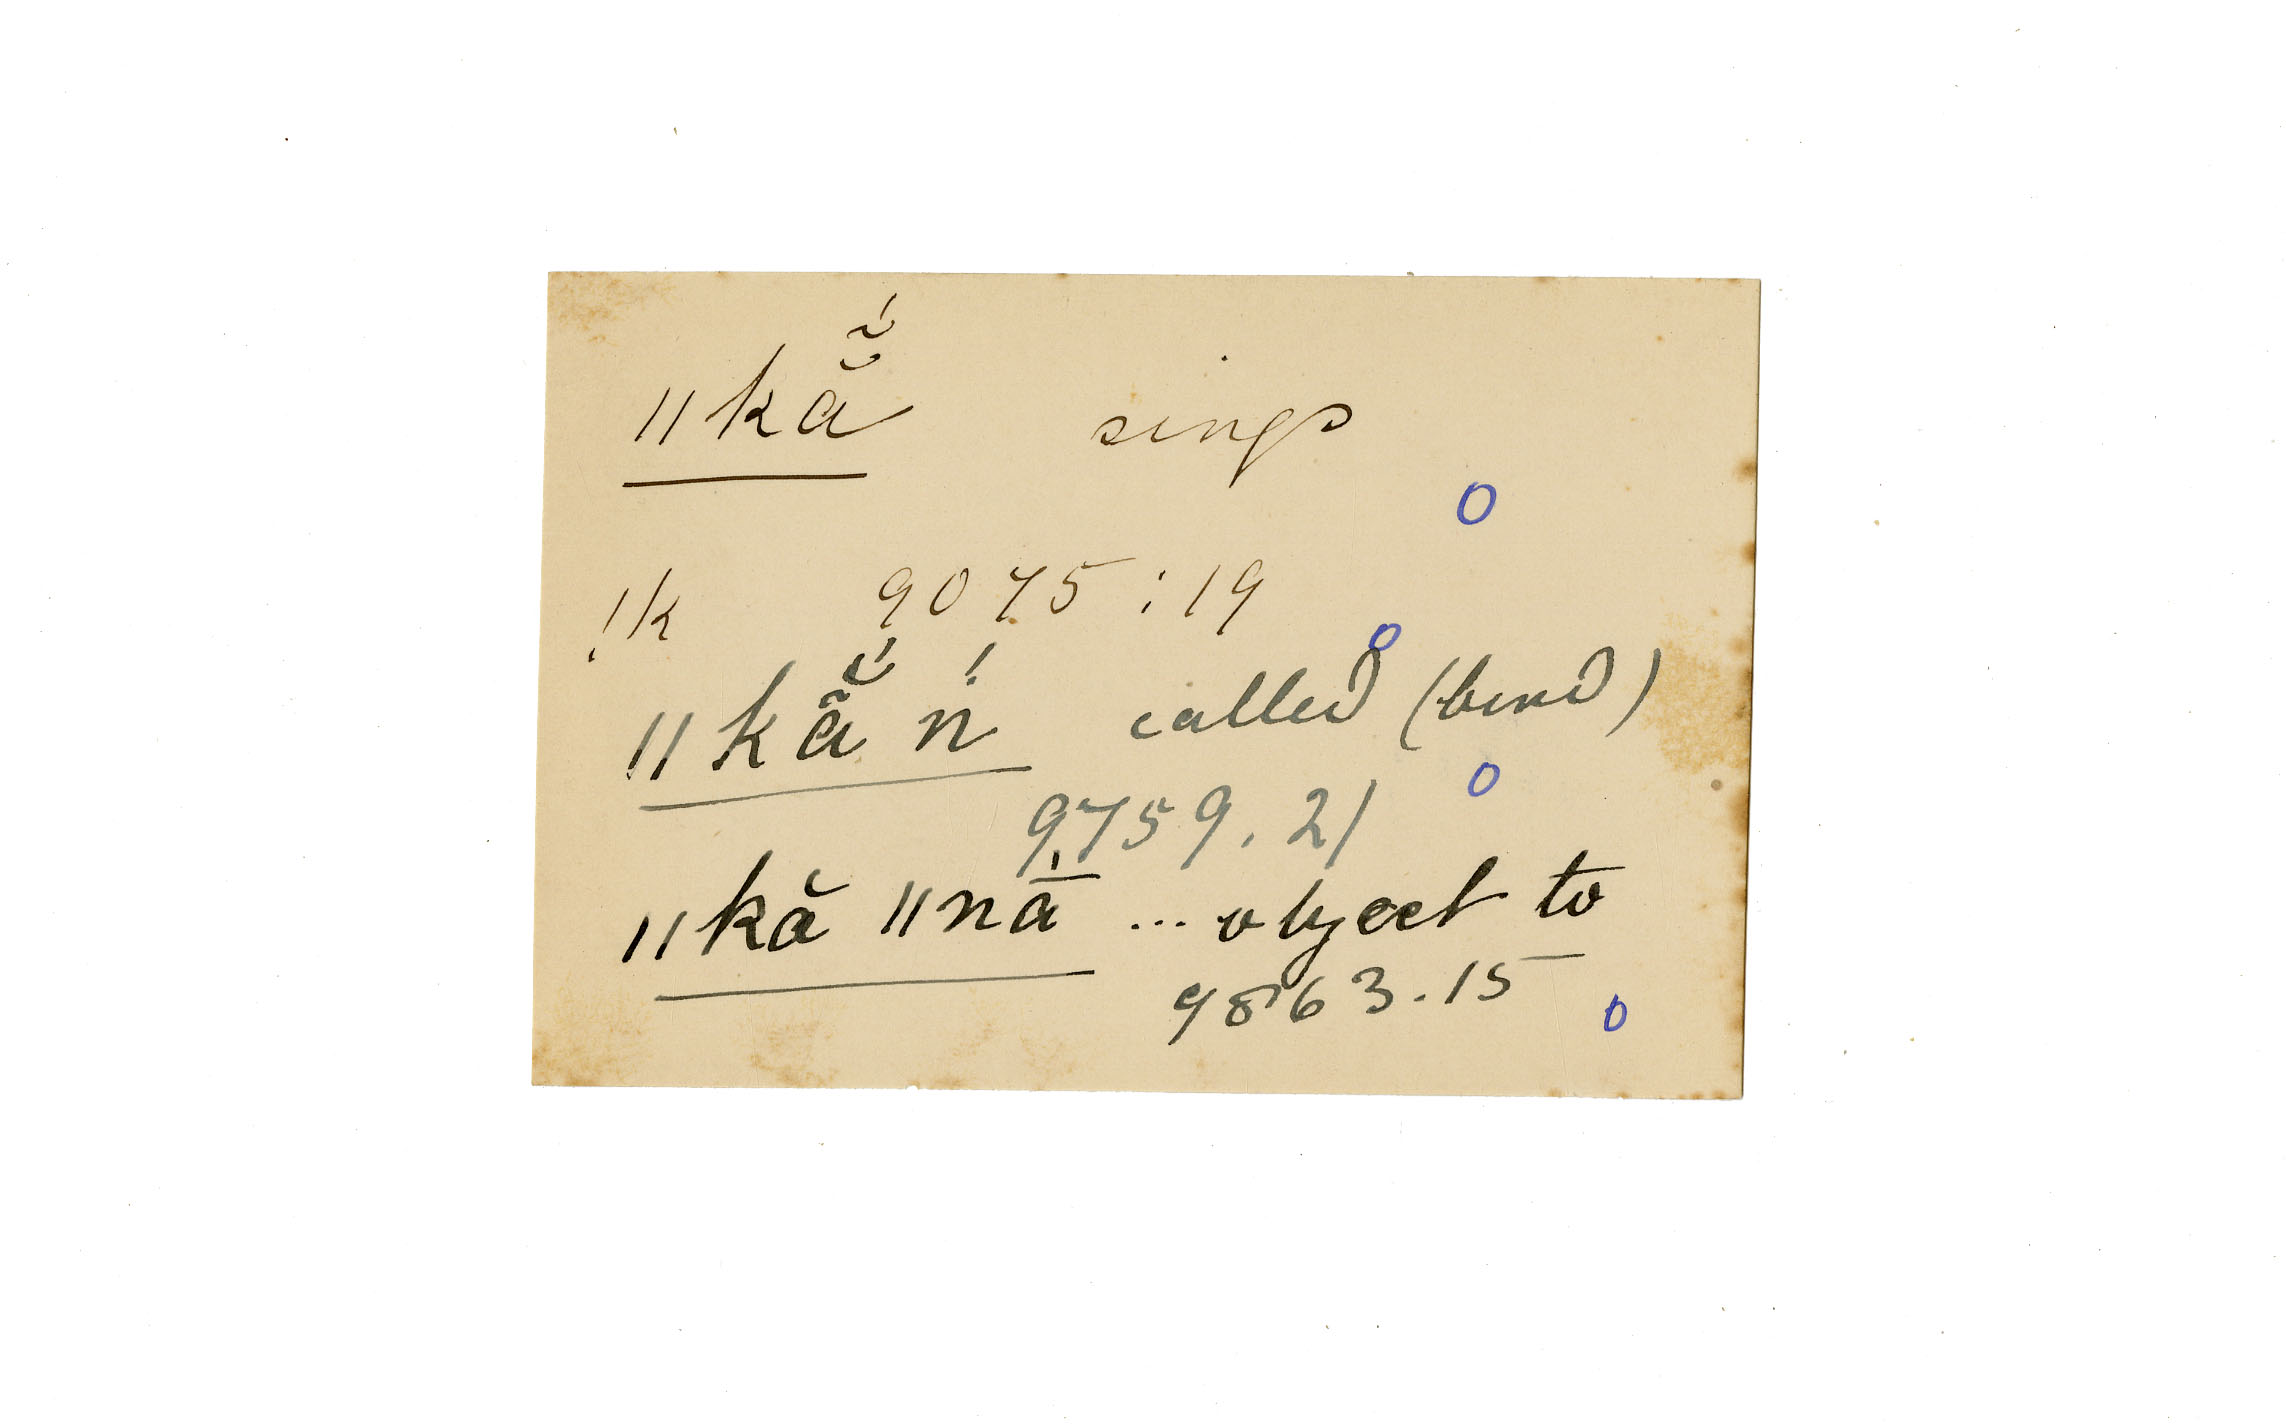 ǁkằ̆́ sings
!k 9075:19
ǁkã̆́ ń called (bend)
9759.21
ǁkă ǁnā́ ... object to
9863.15